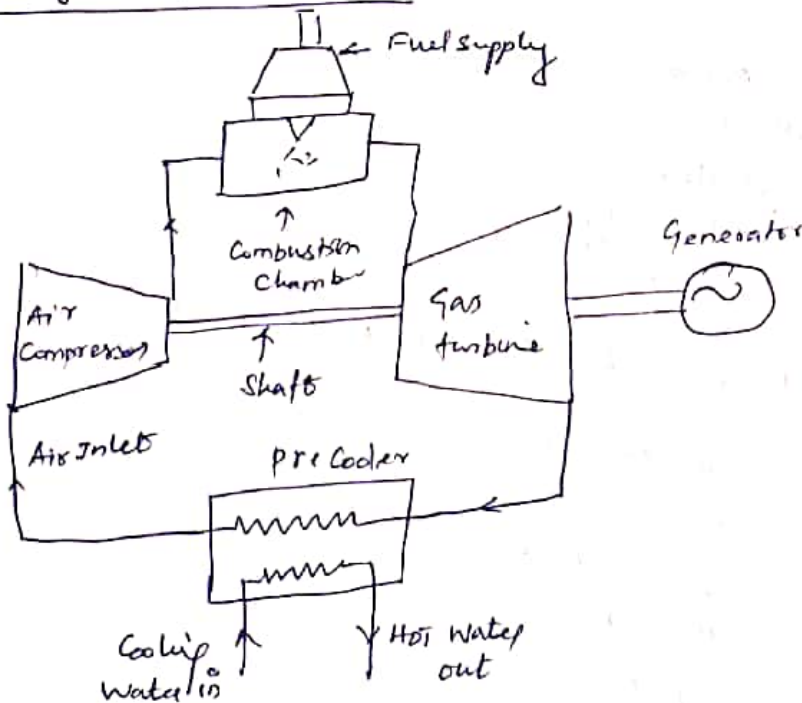 Fuel supply
Combustion
Chamber
Generator
Air
Compressor
Gas
turbine
Shaft
Air Inlet
Pre Cooler
Cooling
Water in
Hot Water
out